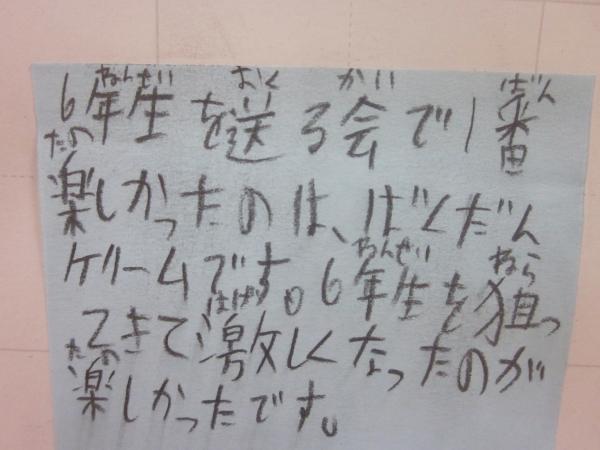 6年生を送る会で1番
楽しかったのは、ばくだん
ゲームです。6年生を狙っ
てきて激しくなったのが
楽しかったです。